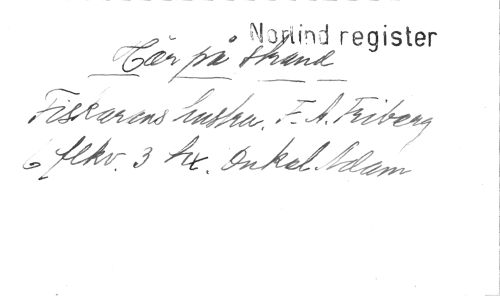 Norlind register
Här på strand
Fiskarens hustru. F. A. Friberg
6 flkv. 3 hx. Onkel Adam